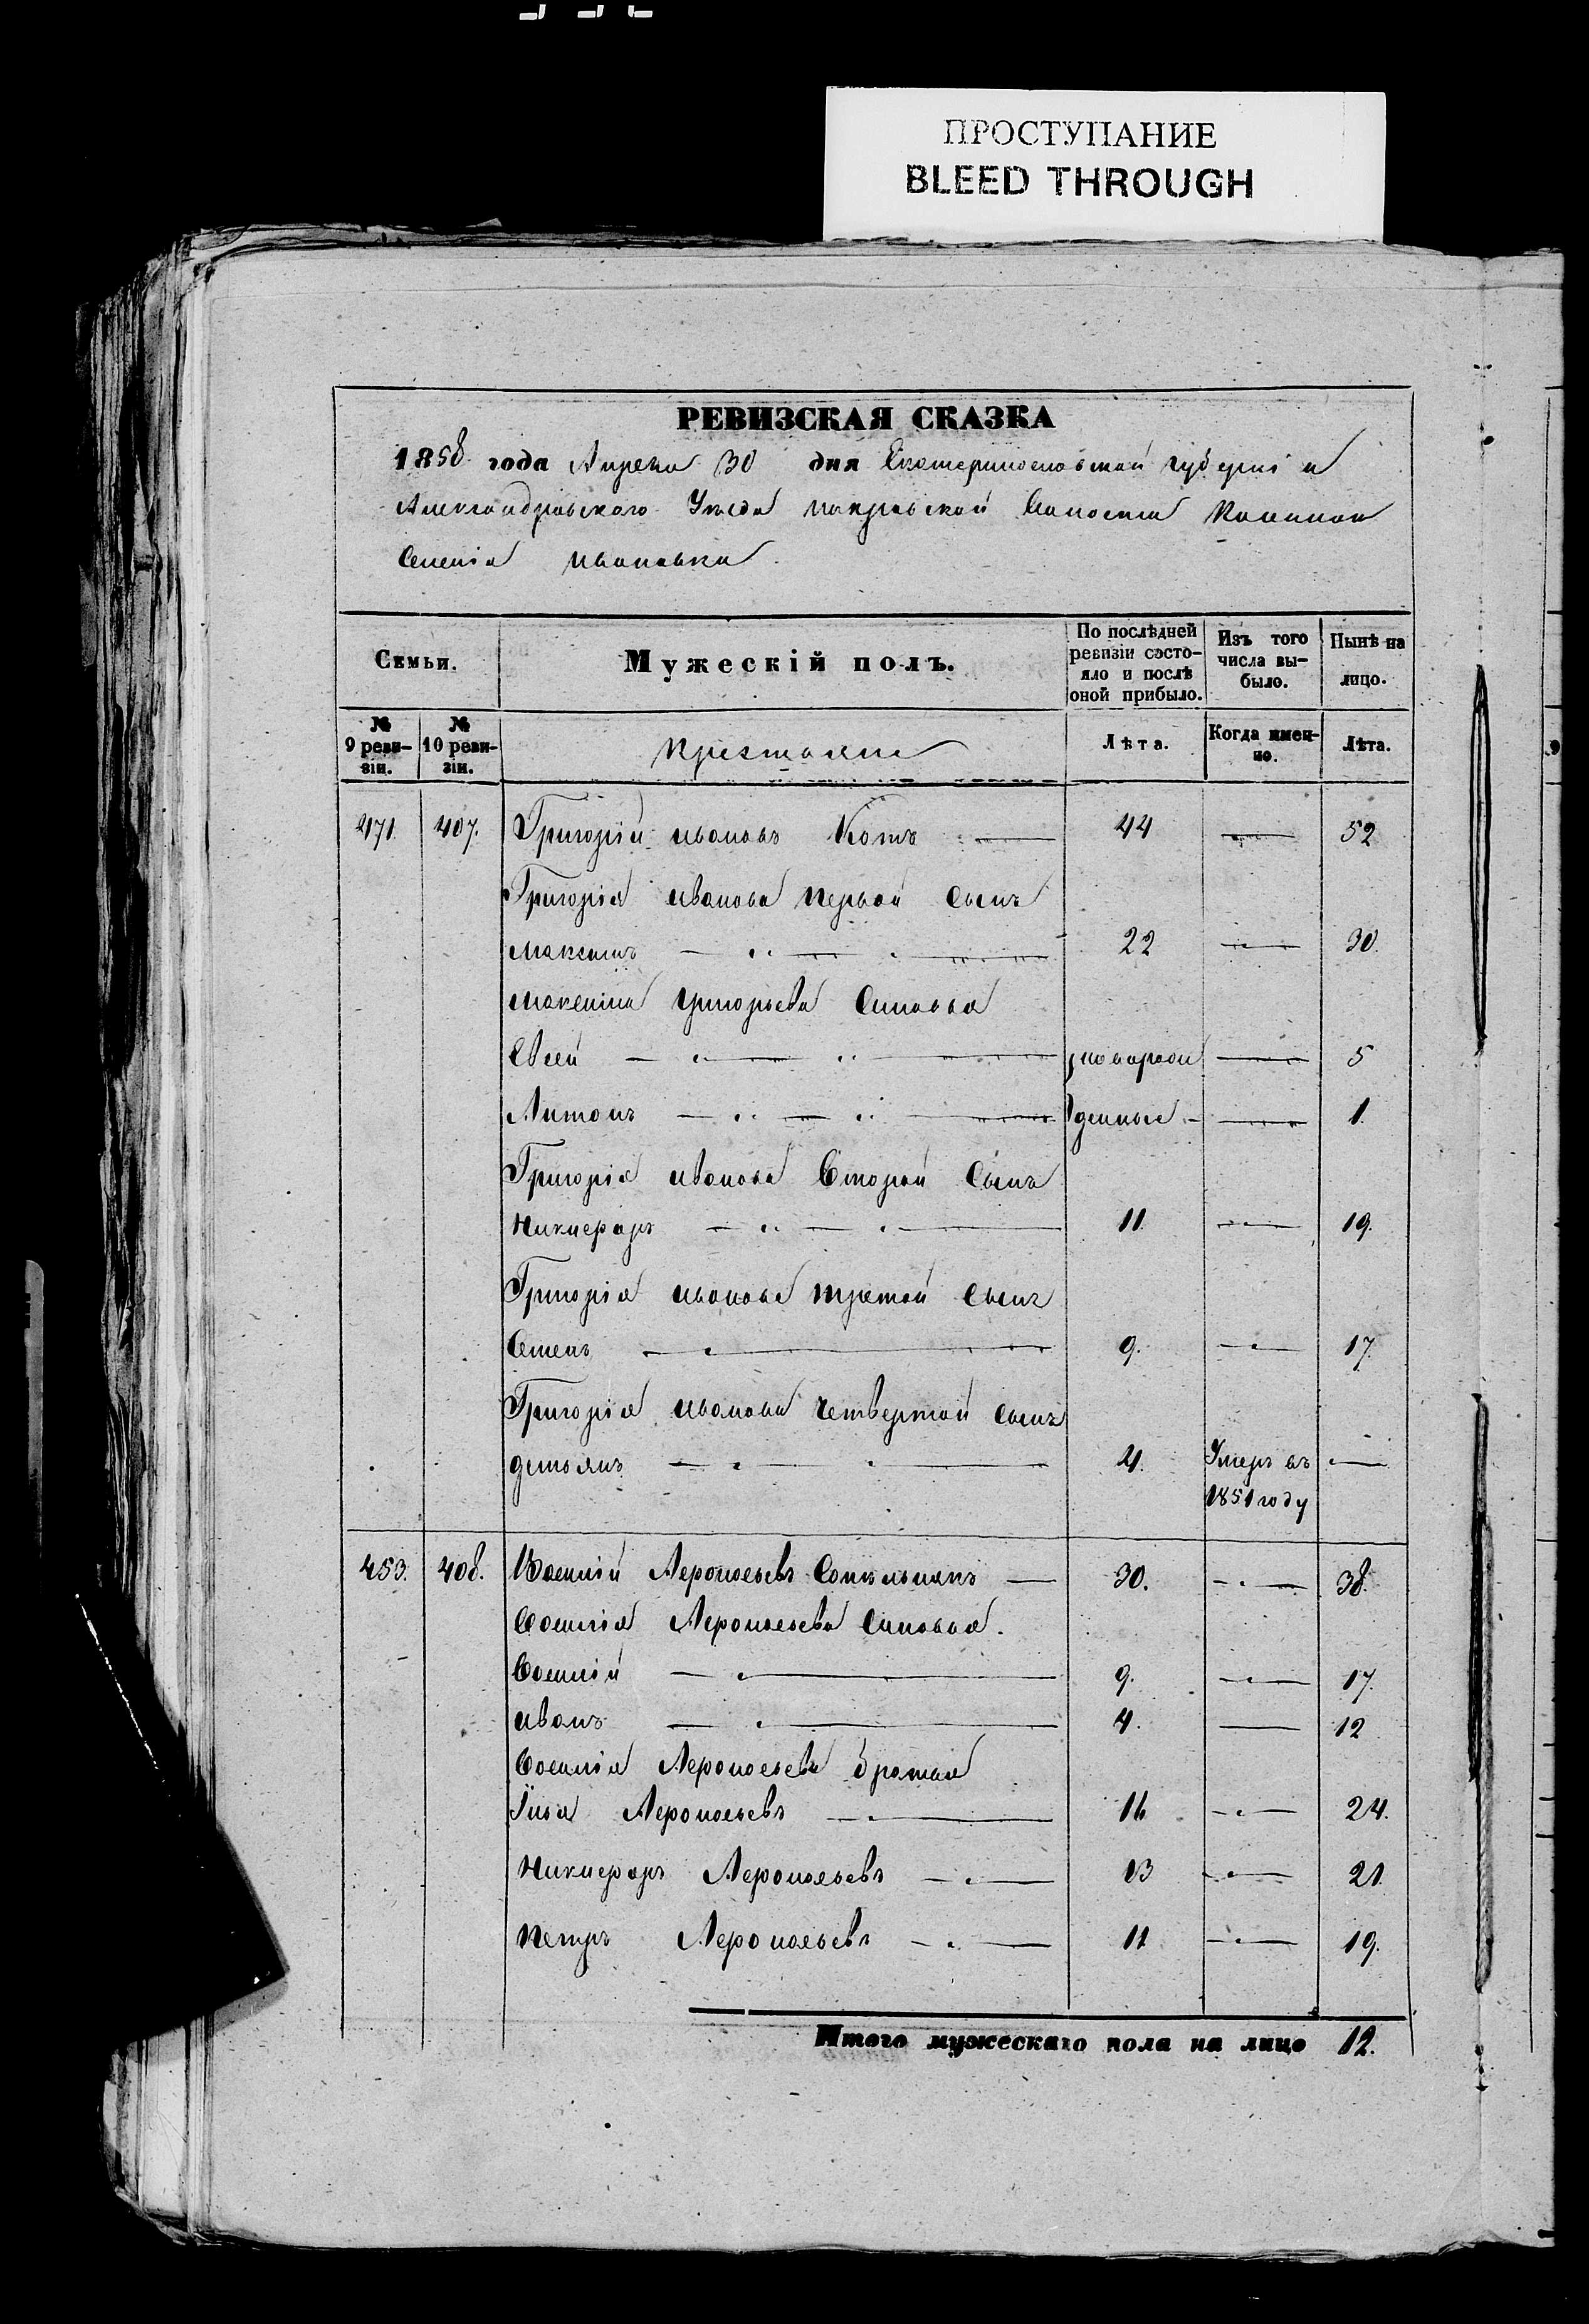 ПРОСТУПАНИЕ
BLEED THROUGH
РЕВИЗСКАЯ СКАЗКА
1858 года Апреля 30 дня Екатеринославской губерніи
Александровскаго Уезда Покровской Волости
Селенія Ивановки
Семьи.
Мужескій полъ.
По послѣдней ревизіи состо-
яло и послѣ оной прибыло.
Изъ того числа вы-
было.
Нынѣ на лицо.
№ 9 реви-
зіи.
№ 10 реви-
зіи.
Крестьяне
Лѣта.
Когда имен-
но.
Лѣта.
471. 407. Григорій Ивановъ Котъ 44 52
Григорія Иванова Первой Сынъ
Максимъ 22 30.
Максима Григорьева Сыновья
Евсей новорож 5
Антонъ денные 1.
Григорія Иванова Второй Сынъ
Никифоръ 11. 19.
Григорія Иванова третой Сынъ
Семенъ 9. 17.
Григорія Иванова Четвертой Сынъ
Демьянъ 4. Умеръ въ
1851 году
453. 408. Василій 30. 38.
Василія Сыновья.
Василій 9. 17.
Иванъ 4. 12
Василія братья
Илья 16 24.
Никифоръ 13 21.
Петръ 11 19.
Итого мужескаго пола на лицо 12.